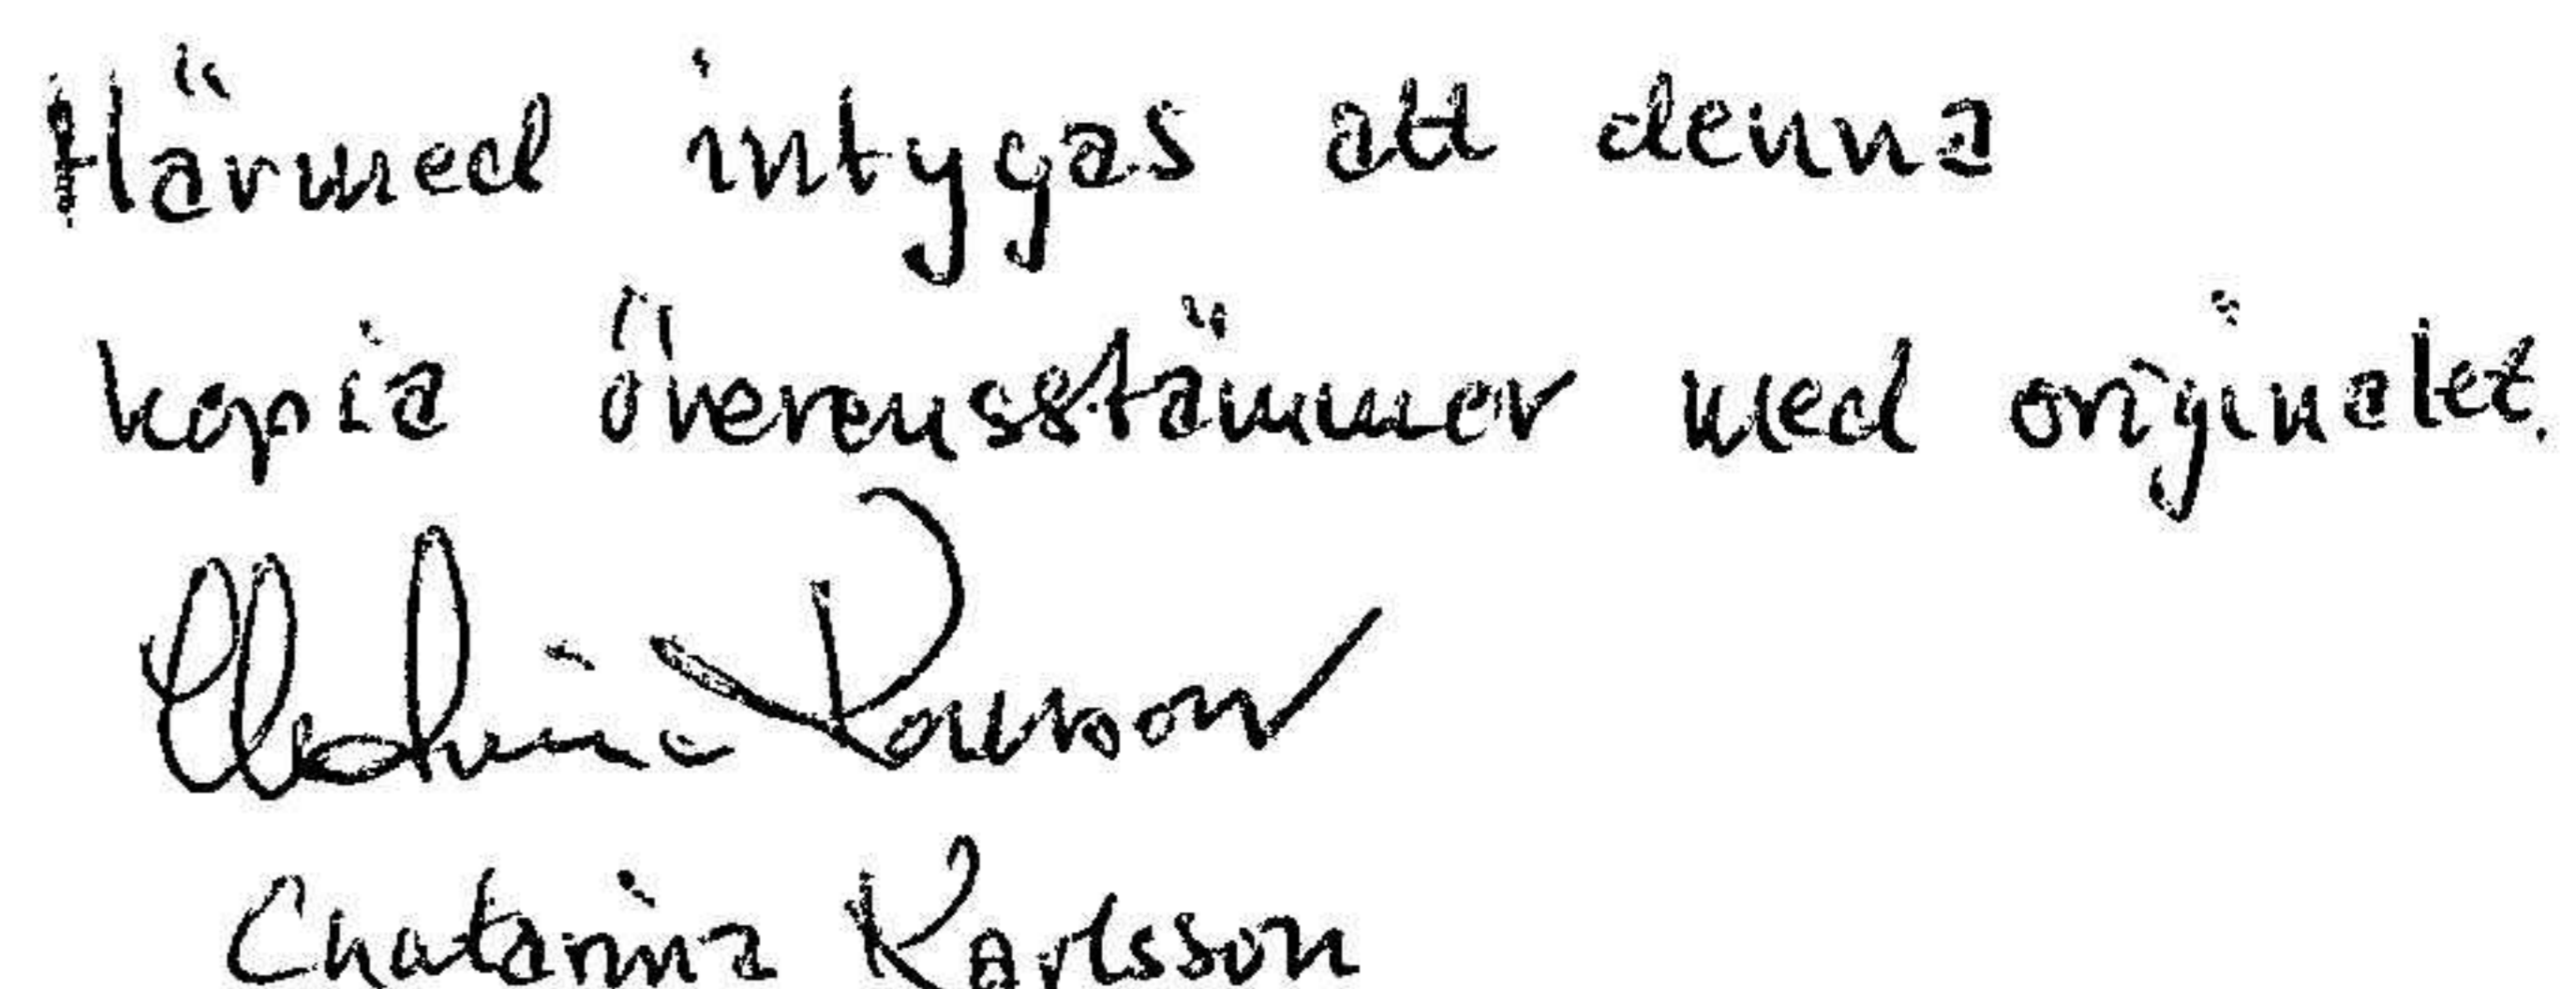 Härmed intygas att denna
kopia överensstämmer med originalet.
Chatarina Karlsson